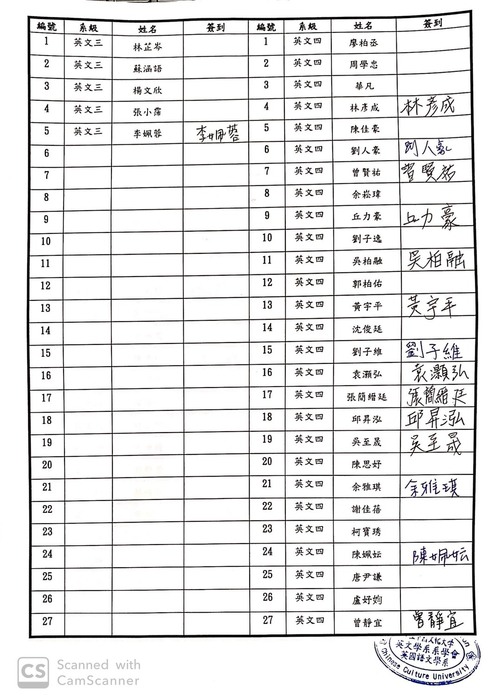 編號 系級 姓名 簽到 編號 系級 姓名 簽到
1 英文三 林芷岑 1 英文四 廖柏丞
2 英文三 蘇涵語 2 英文四 周學忠
3 英文三 楊文欣 3 英文四 華凡
4 英文三 張小霈 4 英文四 林彥成 林彥成
5 英文三 李姵蓉 李姵蓉 5 英文四 陳佳豪
6 6 英文四 劉人豪
7 7 英文四 曾賢祐 曾賢祐
8 8 英文四 余崧瑋
9 9 英文四 丘力豪 丘力豪
10 10 英文四 劉子逸
11 11 英文四 吳柏融 吳柏融
12 12 英文四 郭柏佑
13 13 英文四 黃宇平 黃宇平
14 14 英文四 沈俊廷
15 15 英文四 劉子維 劉子維
16 16 英文四 袁灝弘 袁灝弘
17 17 英文四 張簡縉廷 張簡縉廷
18 18 英文四 邱昇泓 邱昇泓
19 19 英文四 吳至晟 吳至晟
20 20 英文四 陳思妤
21 21 英文四 余雅琪 余雅琪
22 22 英文四 謝佳蓓
23 23 英文四 柯寶琇
24 24 英文四 陳姵妘 陳姵妘
25 25 英文四 唐尹謙
26 26 英文四 盧妤姁
27 27 英文四 曾靜宜 曾靜宜
英文學系系學會
英國語文學系
Chinese Culture University
CS Scanned with
CamScanner